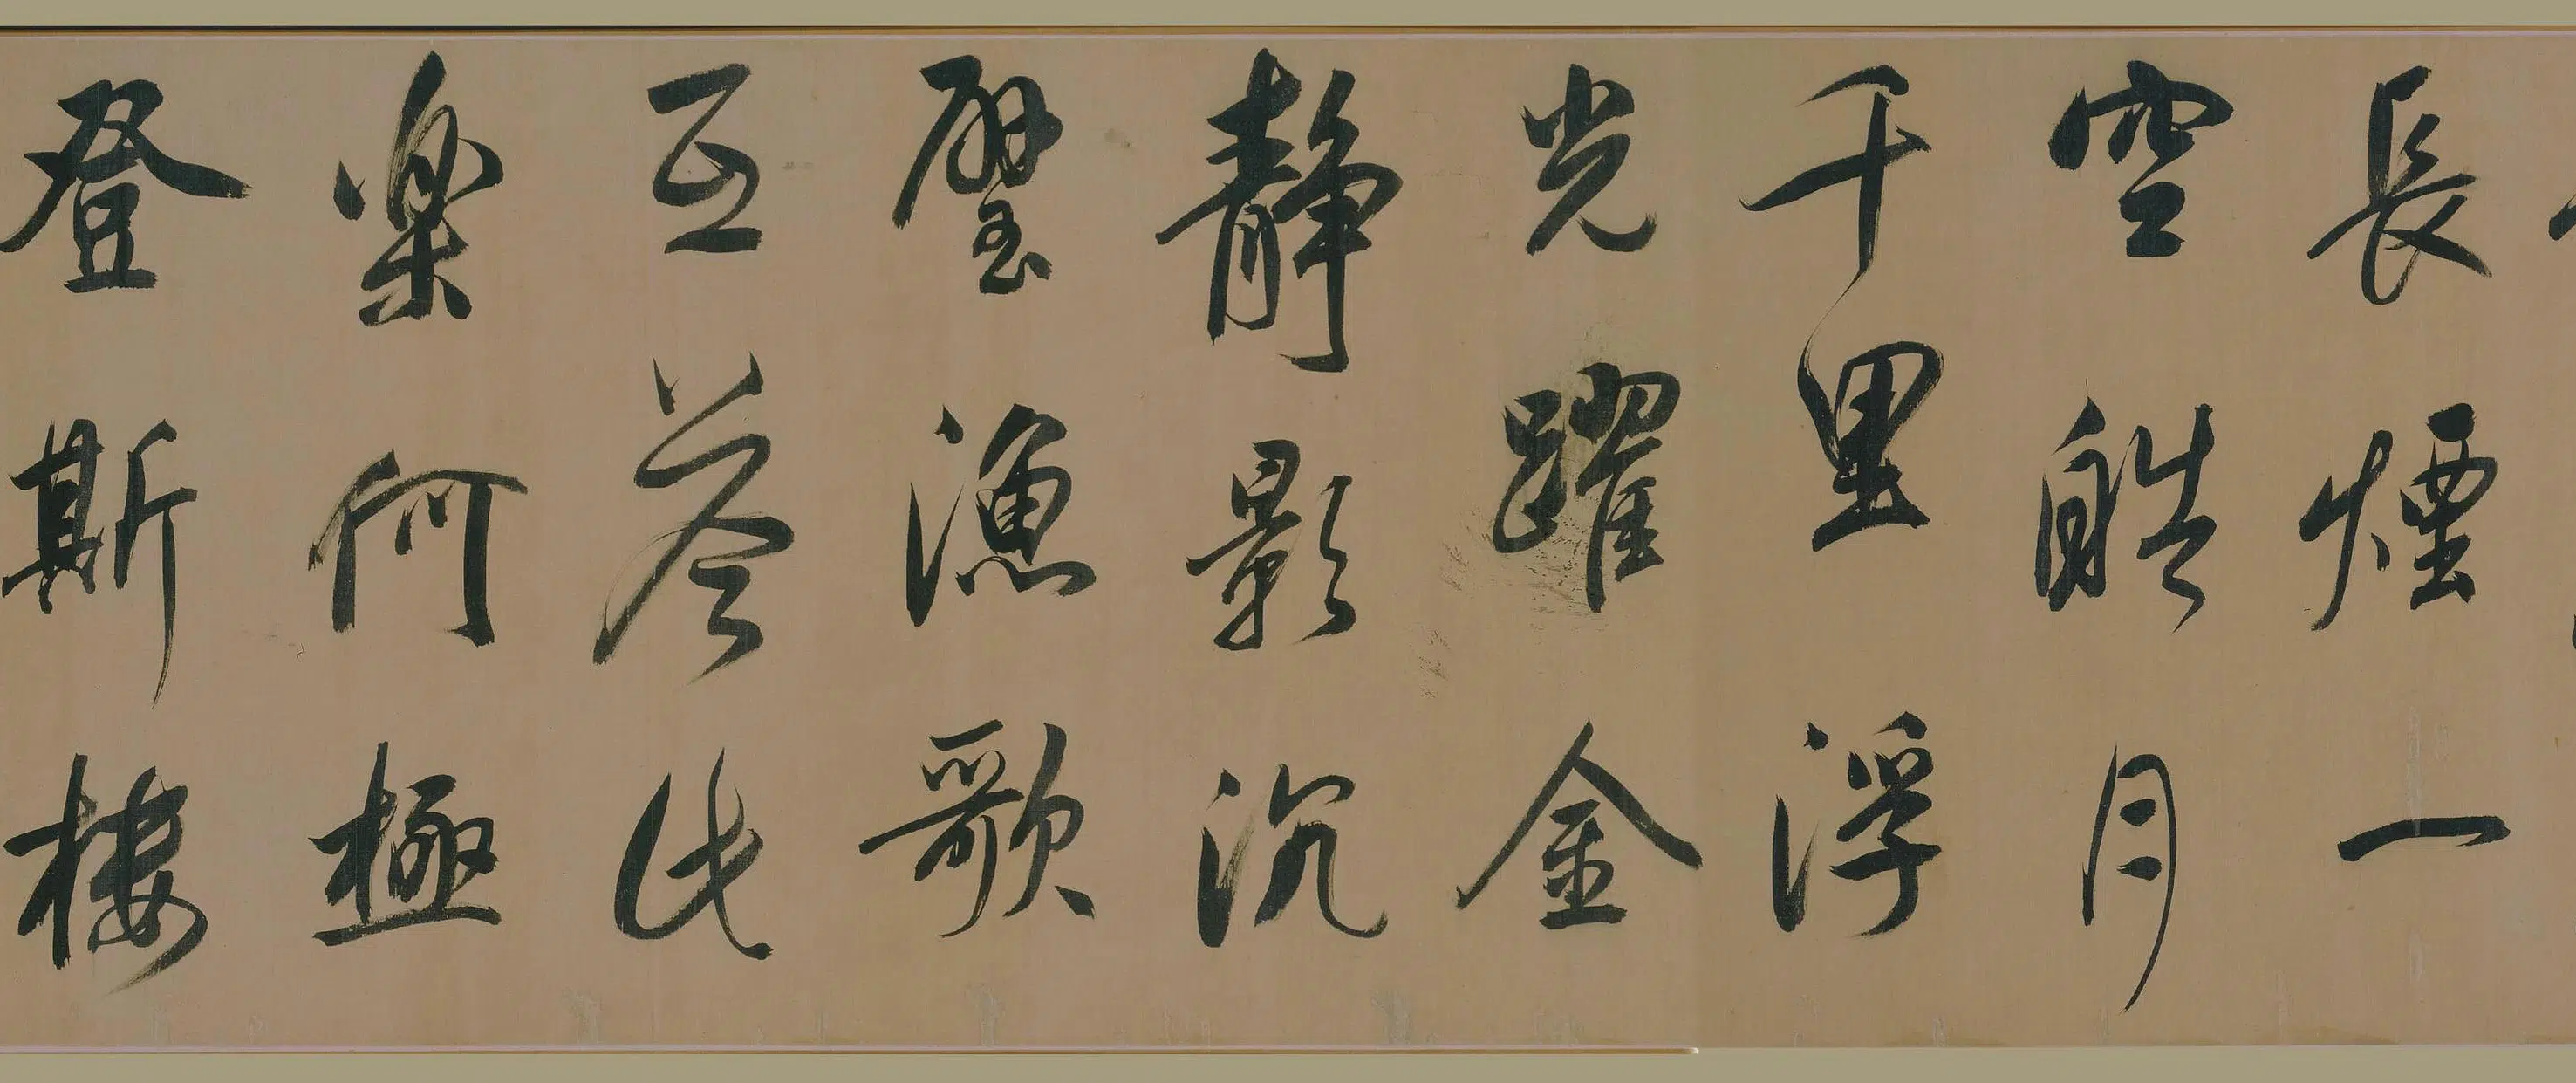 長煙一
空皓月
千里浮
光躍金
静影沉
璧漁歌
互荅此
楽何極
登斯樓